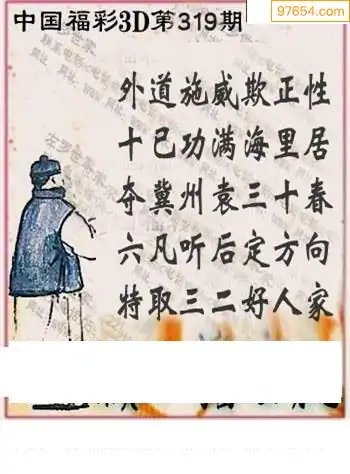 97654.com
中国福彩3D第319期
外道施威欺正性
十已功满海里居
夺冀州袁三十春
六凡听后定方向
特取三二好人家